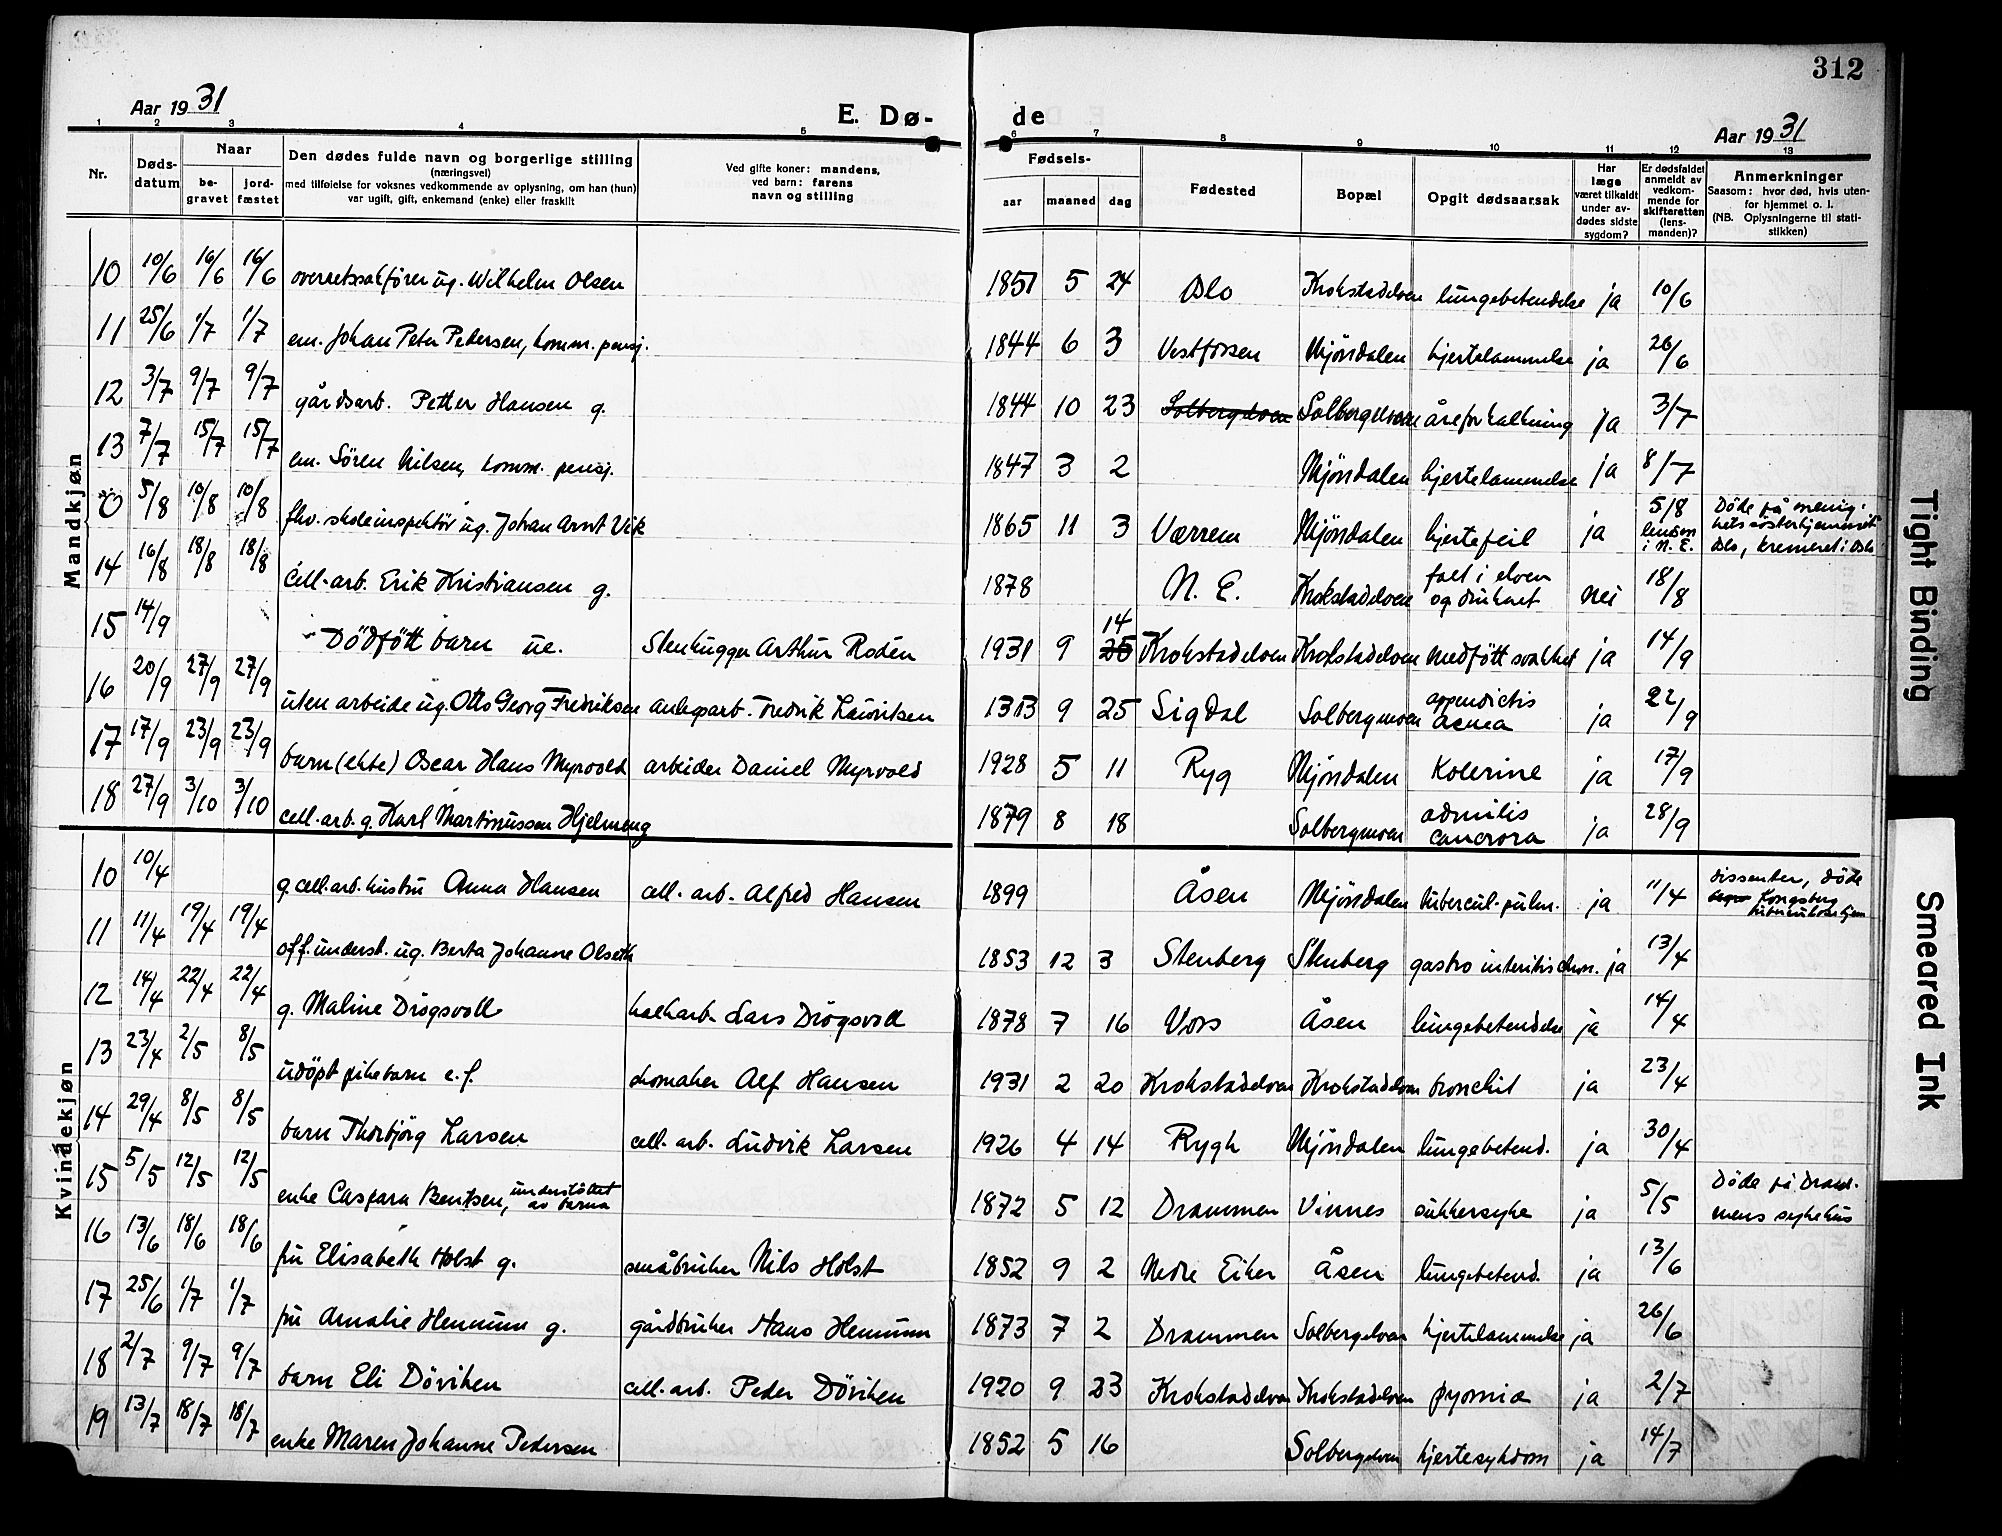 312
Aar 1931
E. Dø-
de
Aar 1931
1 2 3 4 5 6 7 8 9 10 11 12 13
Nr.
Døds-
datum
Naar
be-
gravet
jord-
fæstet
Den dødes fulde navn og borgerlige stilling
(næringsvei)
med tilføielse for voksnes vedkommende av oplysning, om han (hun)
var ugift, gift, enkemand (enke) eller fraskilt
Ved gifte koner: mandens,
ved barn: farens
navn og stilling
Fødsels-
aar maaned dag
Fødested
Bopæl
Opgit dødsaarsak
Har
læge
været tilkaldt
under av-
dødes sidste
sygdom?
Er dødsfaldet
anmeldt av
vedkom-
mende for
skifteretten
(lens-
manden)?
Anmerkninger
Saasom: hvor død, hvis uten-
for hjemmet o. l.
(NB. Oplysningerne til stati-
stikken)
Mandkjøn
10 10/6 16/6 16/6 overretssakfører ug. Wilhelm Olsen 1851 5 24 Oslo Krokstadelven lungebetendelse ja 10/6
11 25/6 1/7 1/7 em. Johan Peter Pedersen, komm. pensj. 1844 6 3 Vestfossen Mjöndalen hjertelammelse ja 26/6
12 3/7 9/7 9/7 gårdsarb. Petter Hansen g. 1844 10 23 Solbergelven Solbergelven åreforkalkning ja 3/7
13 7/7 15/7 15/7 em. Sören Nilsen, komm. pensj. 1847 3 2 Mjöndalen hjertelammelse ja 8/7
0 5/8 10/8 10/8 fhv. skoleinspektör ug. Johan Arnt Vik 1865 11 3 Værrem Mjöndalen hjertefeil ja 5/8 lensm i N. E. Döde på menig-
hetssösterhjemmet
Oslo, kremeret i Oslo
14 16/8 18/8 18/8 cell-arb. Erik Kristiansen g. 1878 N. E. Krokstadelven falt i elven
og druknet nei 18/8
15 14/9 Dödfött barn ue. Stenhugger Arthur Roden 1931 9 14 25 Krokstadelven Krokstadelven medfött svakhet ja 14/9
16 20/9 27/9 27/9 uten arbeide ug. Otto Georg Fredriksen anlegsarb. Fredrik Lauritsen 1313 9 25 Sigdal Solbergmoen appendictis
acuea ja 22/9
17 17/9 23/9 23/9 barn (ekte) Oscar Hans Myrvold arbeider Daniel Myrvold 1928 5 11 Ryg Mjöndalen Kolerine ja 17/9
18 27/9 3/10 3/10 cell-arb. g. Karl Martinussen Hjelmeng 1879 8 18 Solbergmoen ja 28/9
Kvindekjøn
10 10/4 g. cell.arb. hustru Anna Hansen cell. arb. Alfred Hansen 1899 Åsen Mjöndalen tubercul. pulm. ja 11/4 dissenter, döde
Kongsberg
tuberkulosehjem
11 11/4 19/4 19/4 off. underst. ug. Berta Johanne Olseth 1853 12 3 Stenberg Stenberg gastro interitis chron. ja 13/4
12 14/4 22/4 22/4 g. Maline Drögsvoll kalkarb. Lars Drögsvoll 1878 7 16 Vors Åsen lungebetendelse ja 14/4
13 23/4 2/5 8/5 udöpt pikebarn e.f. skomaker Alf Hansen 1931 2 20 Krokstadelven Krokstadelven bronchit ja 23/4
14 29/4 8/5 8/5 barn Thorbjörg Larsen cell. arb. Ludvik Larsen 1926 4 14 Rygh Mjöndalen lungebetend. ja 30/4
15 5/5 12/5 12/5 enke Caspara Bentsen, understöttet
av barna 1872 5 12 Drammen Vinnes sukkersyke ja 5/5 Döde på Dram-
mens sykehus
16 13/6 18/6 18/6 fru Elisabeth Holst g. småbruker Nils Holst 1852 9 2 Nedre Eiker Åsen lungebetend. ja 13/6
17 25/6 1/7 1/7 fru Amalie Hennum g. gårdbruker Hans Hennum 1873 7 2 Drammen Solbergelven hjertelammelse ja 26/6
18 2/7 9/7 9/7 barn Eli Döviken cell.arb. Peder Döviken 1920 9 23 Krokstadelven Krokstadelven pyomia ja 2/7
19 13/7 18/7 18/7 enke Maren Johanne Pedersen 1852 5 16 Solbergelven hjertesykdom ja 14/7
Tight Binding
Smeared Ink